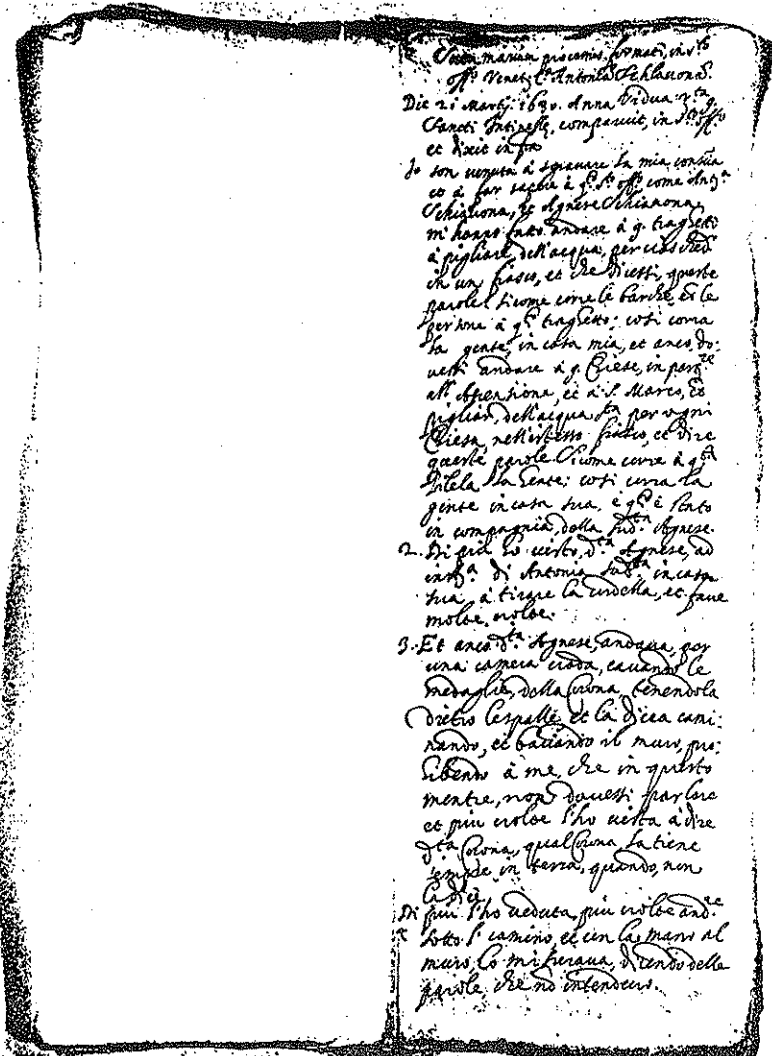 marium processus, formati, in s.to
off.o Venet. C.a Antoniã Schiavonã.
Die 21 Martij 1630. Anna Vidua r.ta q.
Sancti comparuit, in s.to off.o
et dixit in fra
Io son venuta à sgravare la mia consia
et à far sapere à q.to s.to off.o come Ant.a
Schiavona, et Agnese Schiavona,
mi hanno fatto andare à q. traghetti
à pigliare, dell'acqua, per ciascheđ
in un fiasco, et che dicessi, queste
parole Sicome corre le barche, et le
persone à q.to traghetto; cosi corra
la gente, in casa mia, et anco do:
vessi andare à q. Chiese, in par.re
all'Ascensione, et à S. Marco, et
pigliar, dell'acqua s.ta per ogni
Chiesa, nell'istesso fiasco, et dire
queste parole Sicome corre à q.ta
Pilela la Gente; cosi corra la
gente in casa sua, e q.to è stato
in compagnia, della sud.ta Agnese.
2. Di più ho visto, d.ta Agnese, ad
inst.a di Antonia sud.ta in casa
sua, à tirare la cordella, et fave
molte, volte.
3. Et anco d.ta Agnese, andava, per
una camera cavando le
medaglie, della Corona, tenendola
dietro le spalle, et la dicea cami:
nando, et baciando il muro, pro:
hibendo à me, che in questo
mentre, non dovessi parlare
et piu volte l'ho vista à dire
d.ta Corona, qual Corona, la tiene
sempre in terra, quando, non
la dice.
Di piu l'ho veduta, piu volte and.re
sotto l' camino, et con la mano al
muro, lo misurava, dicendo delle
parole, che nõ intendevo.